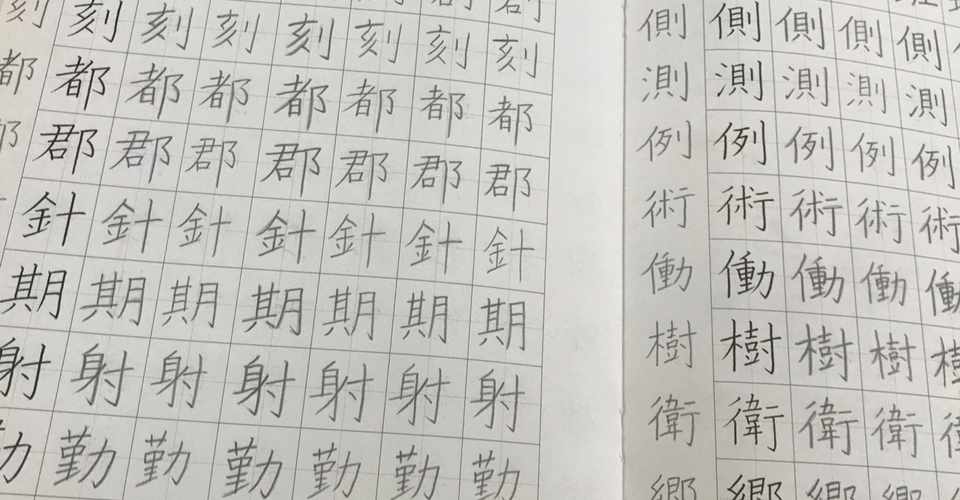 刻刻刻刻刻刻刻刻
都都都都都都都都
郡郡郡郡郡郡郡
針針針針針針針
期期期期期期期
射射射射射射射
勤勤勤勤勤勤勤
側側側側側
測測測測測
例例例例例
術術術術術
働働働働働
樹樹樹樹
衛衛衛衛
郷郷郷郷